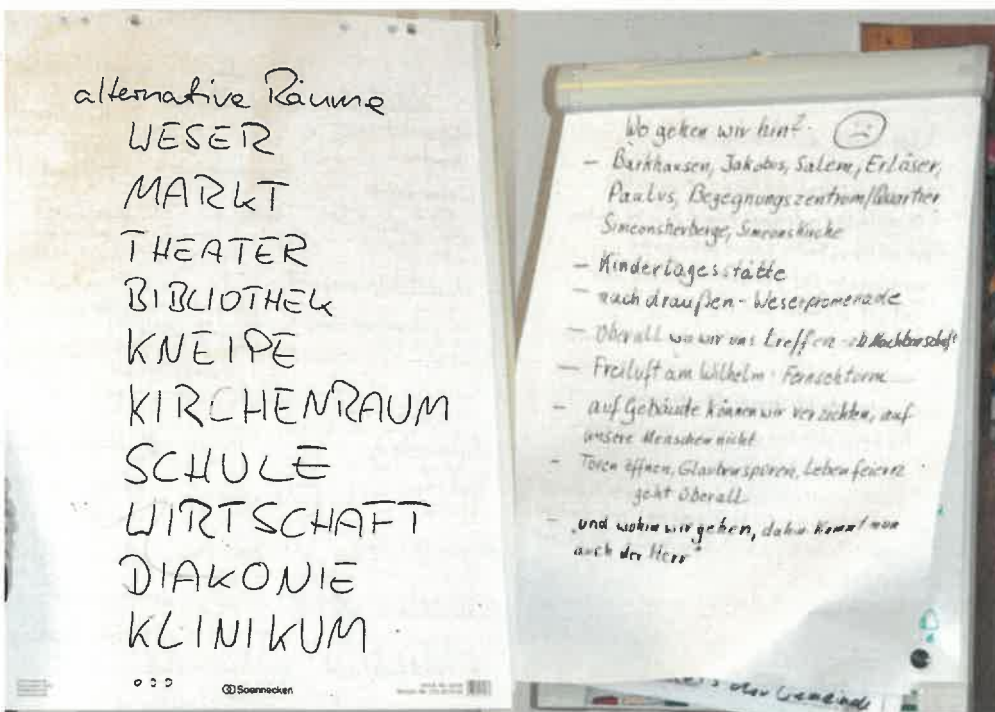 alternative Räume
WESER
MARKT
THEATER
BIBLIOTHEK
KNEIPE
KIRCHENRAUM
SCHULE
WIRTSCHAFT
DIAKONIE
KLINIKUM
Soennecken
Wo gehen wir hin?
- Barkhausen, Jakobus, Salem, Erlöser,
Paulus, Begegnungszentrum/Quartier
Simeonsherberge, Simeonskirche
- Kindertagesstätte
- nach draußen - Weserpromenade
- Überall wo wir uns treffen z.B. Nachbarschaft
- Freiluft am Wilhelm - Fernsehturm
- auf Gebäude können wir verzichten, auf
unsere Menschen nicht
- Türen öffnen, Glauben spüren, Leben feiern
geht überall
- "und wohin wir gehen, dahin kommt nun
auch der Herr"
der Gemeinde